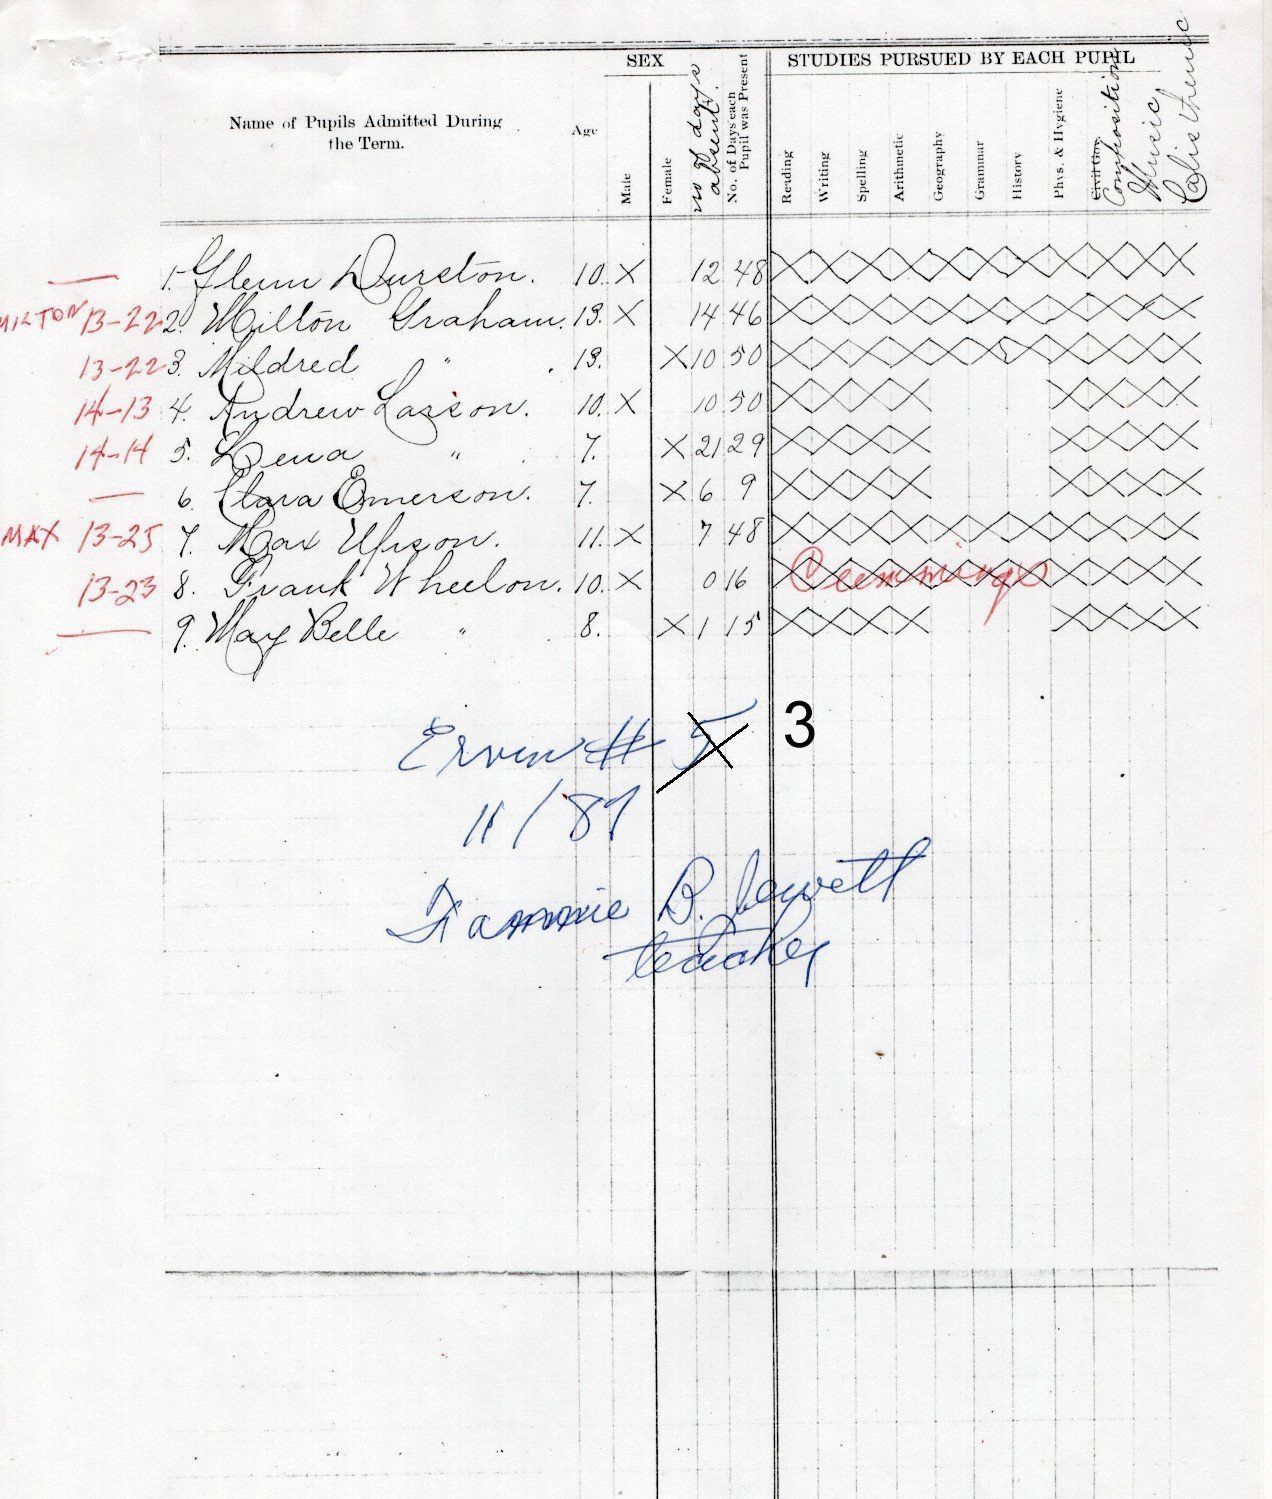 SEX
STUDIES PURSUED BY EACH PUPIL
Name of Pupils Admitted During
the Term.
Age
Male
Female
no of days
absent.
No. of Days each
Pupil was Present
Reading
Writing
Spelling
Arithmetic
Geography
Grammar
History
Phys. & Hygiene
Civil Gov.
Composition
Music
Calisthenic
1. Glenn Durston. 10. X 12 48 X X X X X X X X X X X
MILTON 13-22 2. Milton Graham. 13. X 14 46 X X X X X X X X X X X
13-22 3. Mildred " . 13. X 10 50 X X X X X X X X X X X
14-13 4. Andrew Larson. 10. X 10 50 X X X X X X X X
14-14 5. Lena " . 7. X 21 29 X X X X X X X X
6. Clara Emerson. 7. X 6 9 X X X X X X X X
MAX 13-25 7. Max Upson. 11. X 7 48 X X X X X X X X X X X
13-23 8. Frank Wheelon. 10. X 0 16 X X X X X X X X X X X
9. May Belle " . 8. X 1 15 X X X X X X X X
Ervin # 5 3
11/87
Fannie B. Jewett
teacher